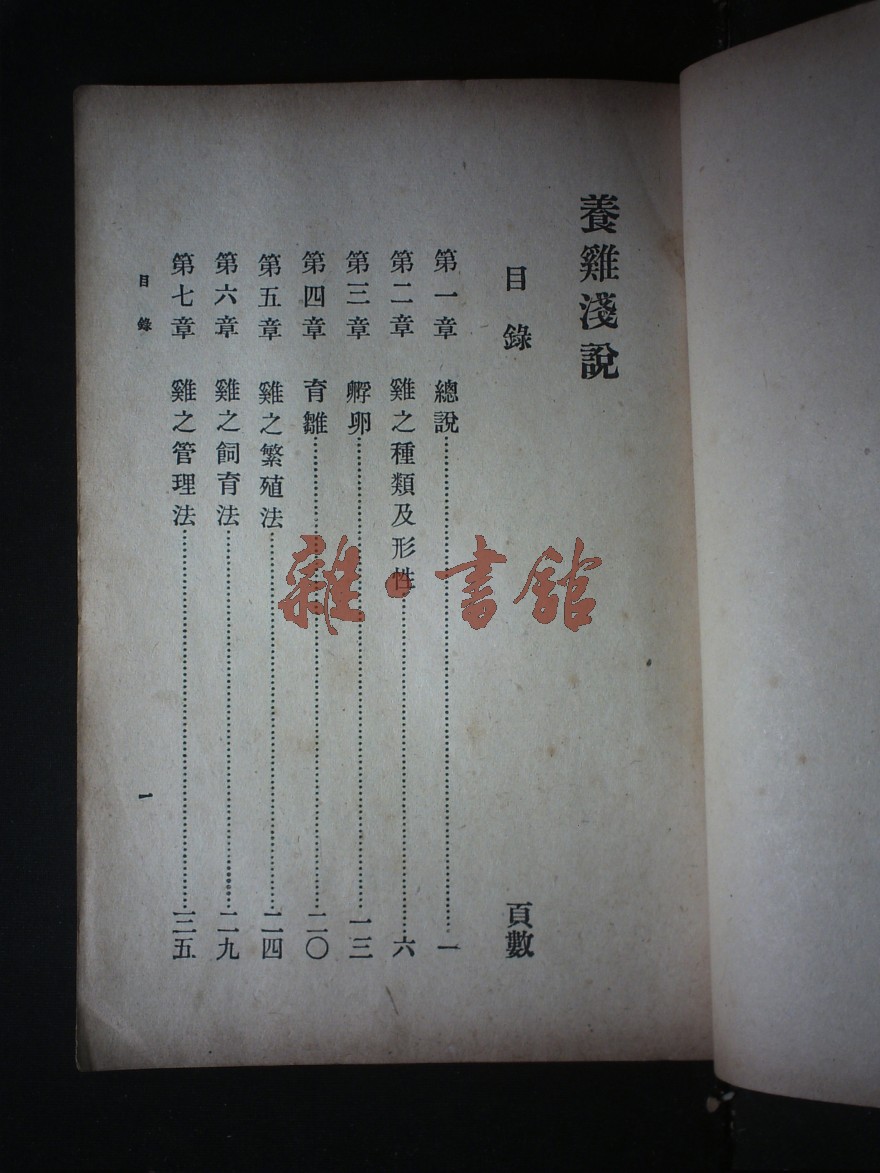 養雞淺說
目錄 頁數
第一章 總說……一
第二章 雞之種類及形性……六
第三章 孵卵……一三
第四章 育雛……二〇
第五章 雞之繁殖法……二四
第六章 雞之飼育法……二九
第七章 雞之管理法……三五
目錄 一
雜·書館